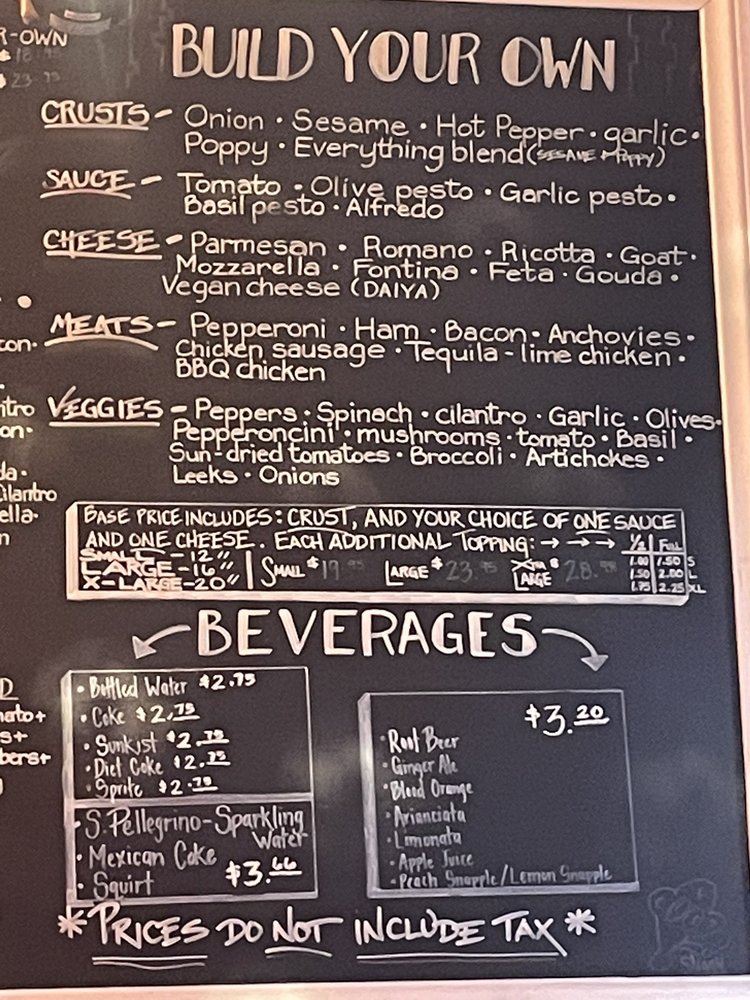 R-OWN
BUILD YOUR OWN
CRUSTS - Onion · Sesame · Hot Pepper · garlic ·
Poppy · Everything blend (SESAME + POPPY)
SAUCE - Tomato · Olive pesto · Garlic pesto ·
Basil pesto · Alfredo
CHEESE - Parmesan · Romano · Ricotta · Goat ·
Mozzarella · Fontina · Feta · Gouda ·
Vegan cheese (DAIYA)
MEATS - Pepperoni · Ham · Bacon · Anchovies ·
Chicken sausage · Tequila-lime chicken ·
BBQ chicken
VEGGIES - Peppers · Spinach · cilantro · Garlic · Olives ·
Pepperoncini · mushrooms · tomato · Basil ·
Sun-dried tomatoes · Broccoli · Artichokes ·
Leeks · Onions
BASE PRICE INCLUDES: CRUST, AND YOUR CHOICE OF ONE SAUCE
AND ONE CHEESE. EACH ADDITIONAL TOPPING: → → → 1/2 FULL
SMALL - 12"
LARGE - 16"
X-LARGE - 20"
SMALL $19
LARGE $23
LARGE $28
1.00 1.50 S
1.50 2.00 L
1.75 2.25 XL
BEVERAGES
· Bottled Water $2.75
· Coke $2.75
· Sunkist $2.75
· Diet Coke $2.75
· Sprite $2.75
· S. Pellegrino - Sparkling
Water
· Mexican Coke
· Squirt $3.66
$3.20
· Root Beer
· Ginger Ale
· Blood Orange
· Aranciata
· Limonata
· Apple Juice
· Peach Snapple/Lemon Snapple
*PRICES DO NOT INCLUDE TAX*